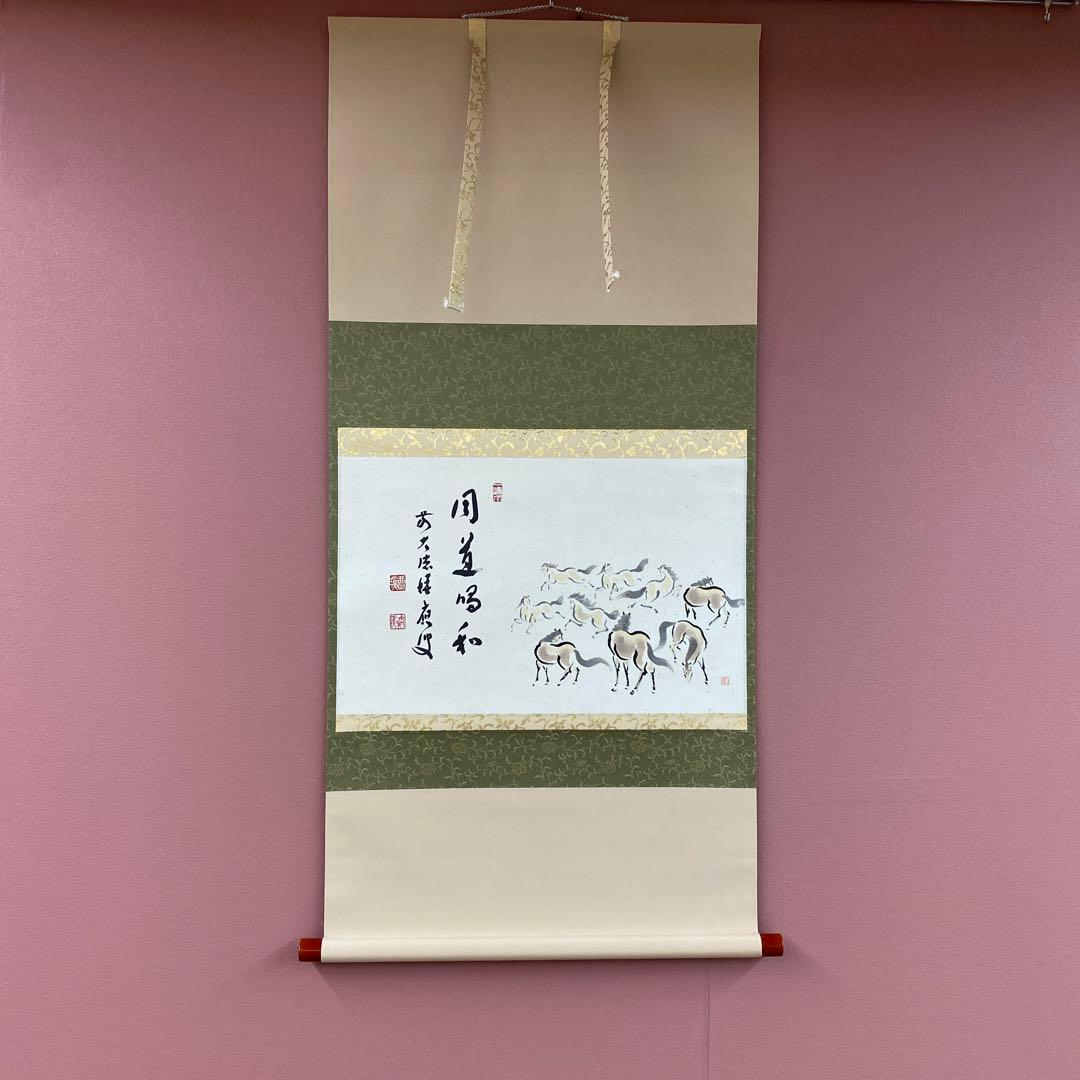 同道唱和
前大徳積應叟